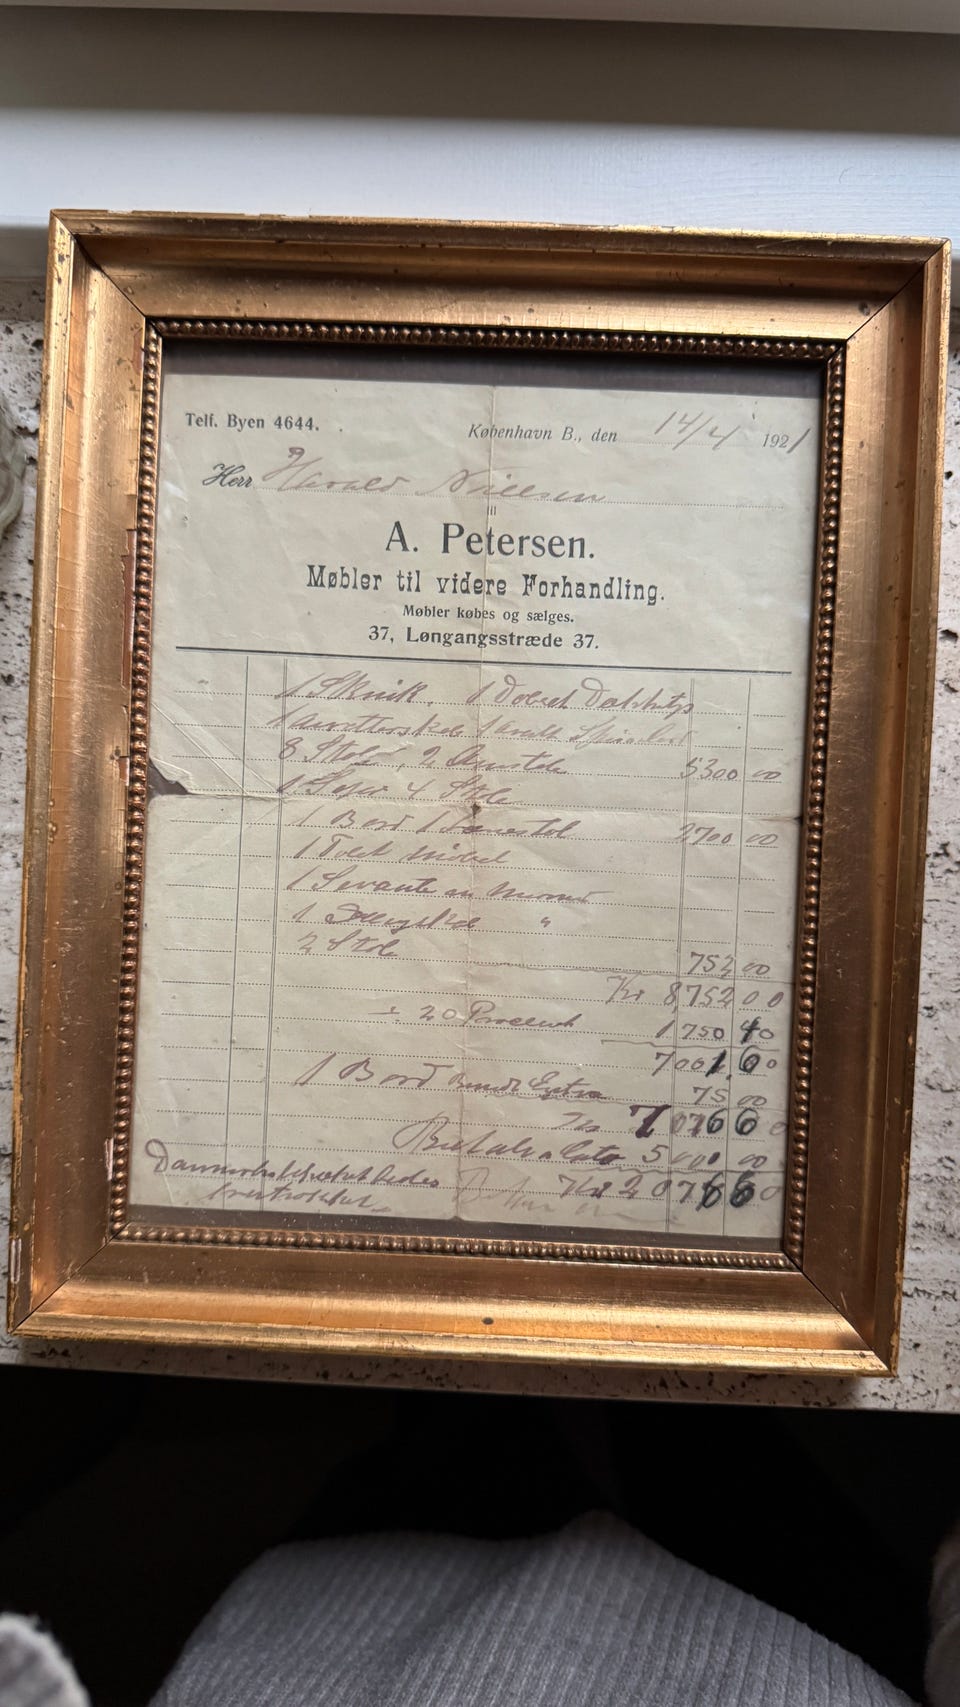 Telf. Byen 4644.
København B., den 14/4 1921
Herr Harald Nielsen
til
A. Petersen.
Møbler til videre Forhandling.
Møbler købes og sælges.
37, Løngangsstræde 37.
1 Skrik. 1
8 Stole, 2 Armstole 5300 00
1 Sofa 4 Stole
1 Bord 1 Lænestol 2700 00
1 Toilet Møbel
1 Servante m Marmor
1 "
2 Stole 752 00
Kr 8752 00
÷ 20 Procent 1750 40
7001,60
1 Bord Rundt Extra 75 00
Kr 7076 60
Betalt a Conto 5000 00
Kr 2076 60